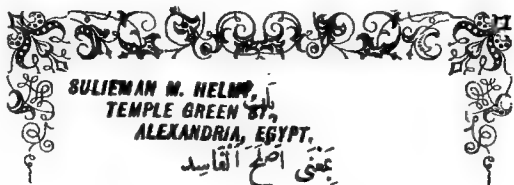 SULIEMAN M. HELMY,
TEMPLE GREEN ST,
ALEXANDRIA, EGYPT.
بَاب
بِمَعْنَى اَصْلَحَ الْفَاسِد